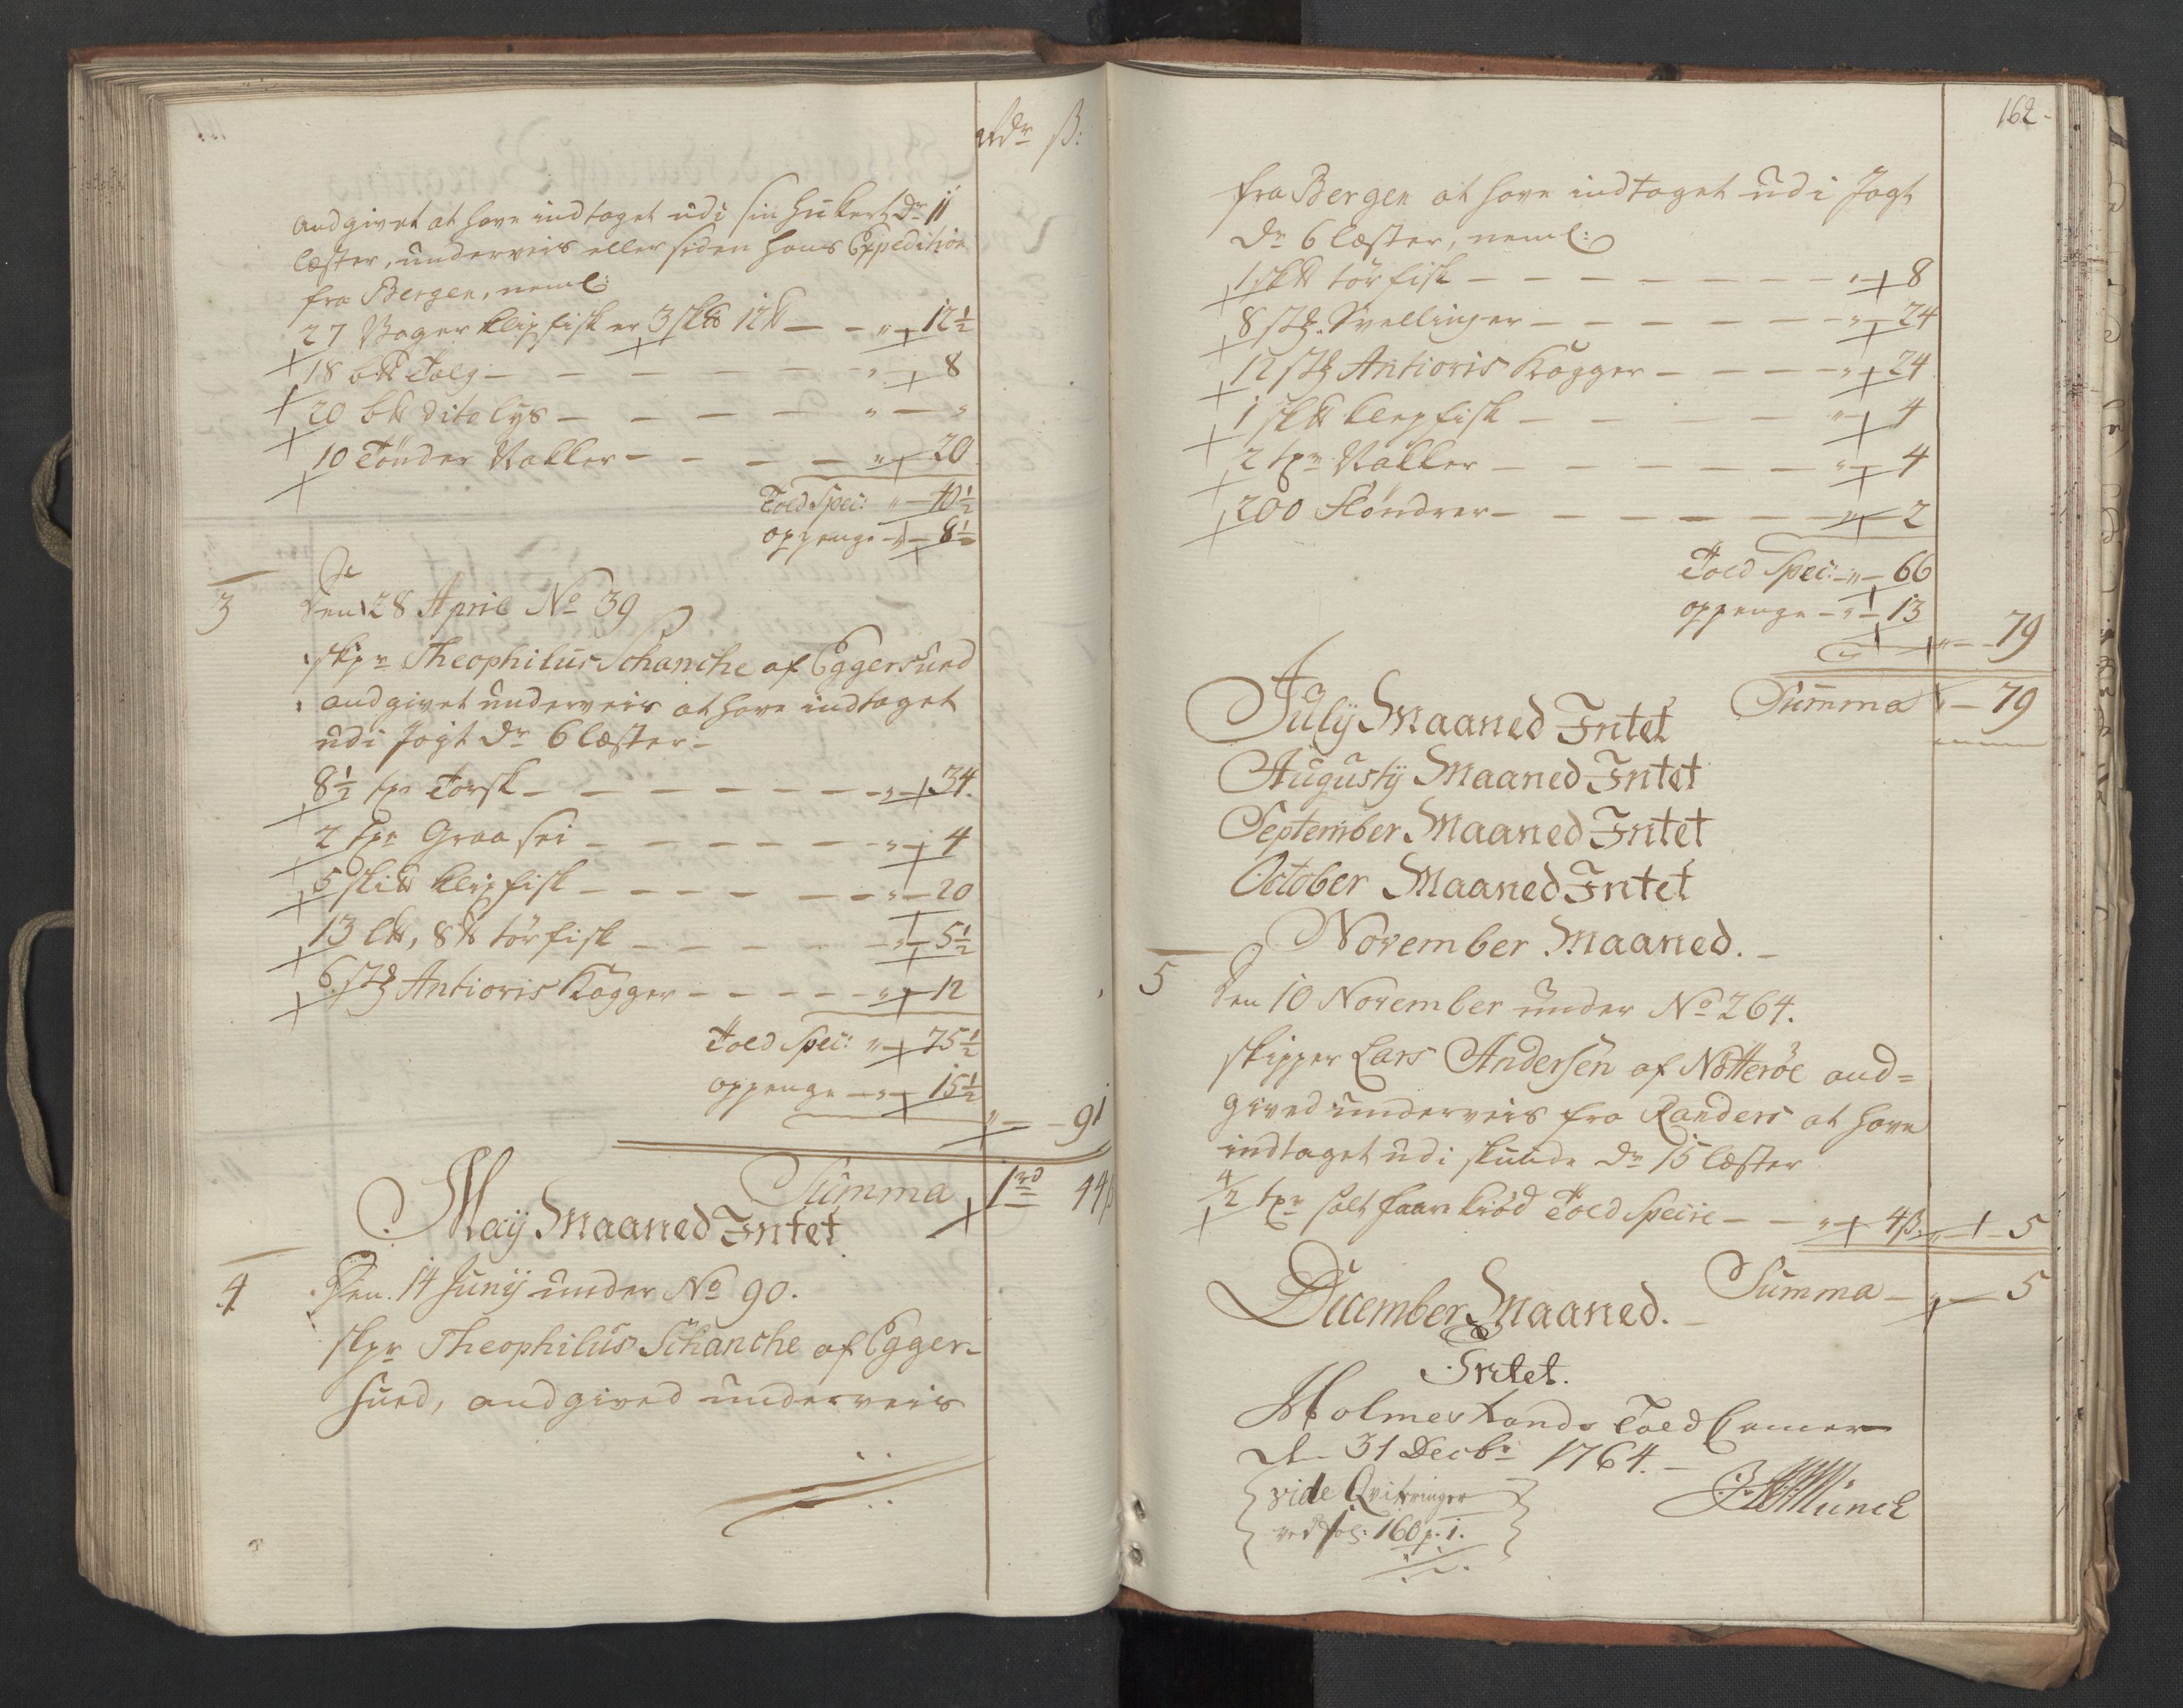 Rdr ß:
andgivet at have indtaget udi sin Hukert dr 11
læster, underveis eller siden hans Expedition
fra Bergen, neml:
27 Voger klipfisk er 3 sk℔ 12 ℔ — — " — 12½
18 b℔ Talg — — — — — " — 8
20 b℔ dito lys — — — — " — "
10 Tønder Rakler — — — — " — 20
Told Speci: " — 40½
oppenge — " — 8½
3
Den 28 April No 39
Skpr Theophilus Schanche af Eggersund
andgivet underveis at have indtaget
udi Jagt dr 6 læster —
8½ tpr Torsk — — — — — — — " — 34.
2 tpr Graasei — — — — — — " — 4
5 sk℔ klipfisk — — — — — — " — 20
13 l℔, 8 ℔ tørfisk — — — — — " — 5½
6 stk Antioris Kagger — — — — — " — 12
Told Speci: " — 75½
oppenge — " — 15½
" — 91
Summa 1rd 44ß
May Maaned Intet
4
Den 14 Junÿ under No 90.
Skpr Theophilus Schanche af Egger-
sund, andgived underveis
162-
fra Bergen at have indtaget udi Jagt
dr 6 læster, neml:
1 sk℔ tørfisk — — — — — — — " — 8
8 stk. Svellinger — — — — — — " — 24
12 stk Antioris Kagger — — — — " — 24
1 sk℔ klepfisk — — — — — " — 4
2 tpr Rakler — — — — — — " — 4
200 Fløndrer — — — — — — " — 2
Told Speci: " — 66
oppenge — " — 13
" — 79
Summa " — 79
Julÿ Maaned Intet
Augustÿ Maaned Intet
September Maaned Intet
October Maaned Intet
November Maaned.
5
Den 10 November under No 264.
Skipper Lars Andersen af Nøtterøe and=
gived underveis fra Randers at have
indtaget udi skuude dr 15 læster
4/2 tpr salt faare kiød Told Specie — — " — 4ß " — 5
Summa — " — 5
December Maaned.
Intet.
Holmestrands Told Camer
d. 31 Decbr 1764.
Münch
vide Qvitteringer
ved fol: 160 p. 1.